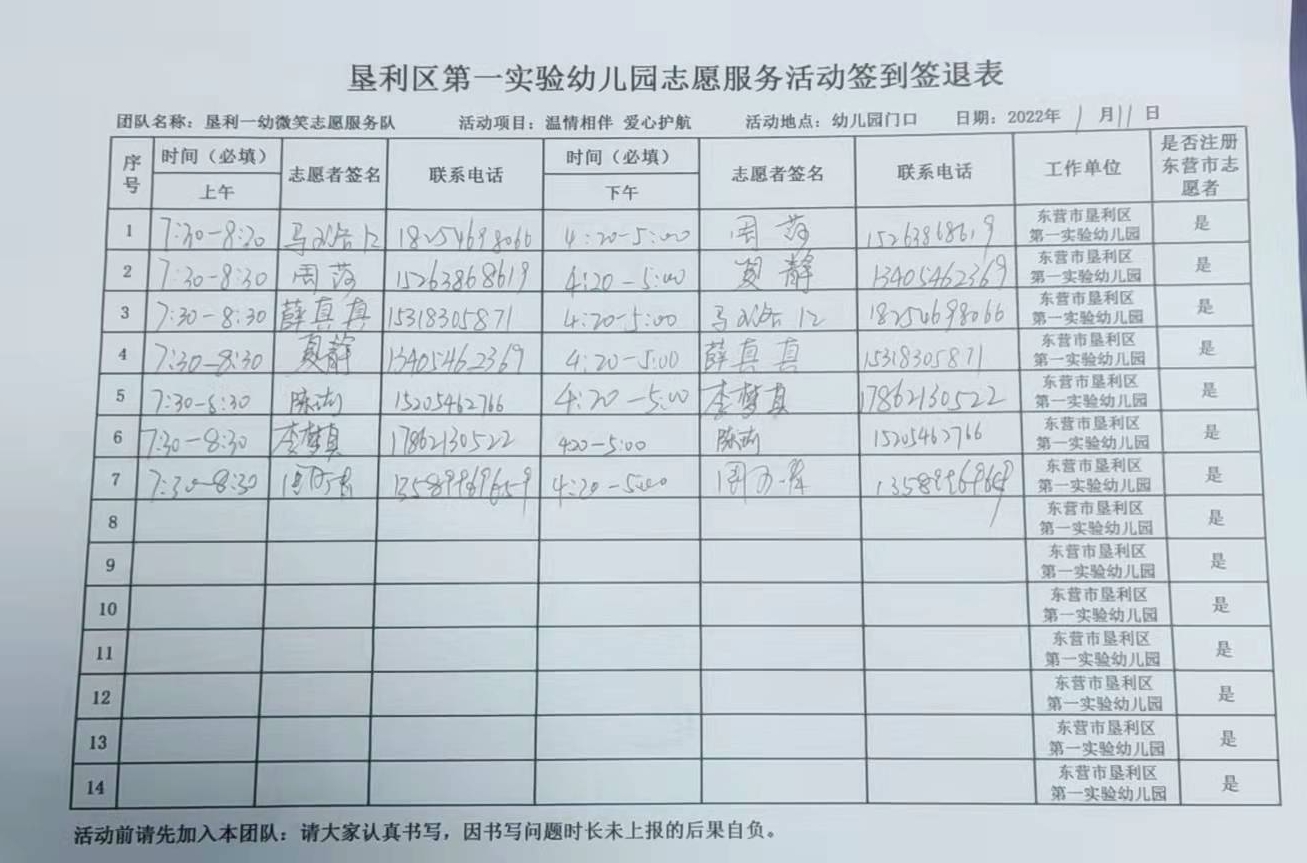 垦利区第一实验幼儿园志愿服务活动签到签退表
团队名称：垦利一幼微笑志愿服务队 活动项目：温情相伴 爱心护航 活动地点：幼儿园门口 日期：2022年 1 月 11 日
序号 时间（必填） 上午 志愿者签名 联系电话 时间（必填） 下午 志愿者签名 联系电话 工作单位 是否注册东营市志愿者
1 7:30-8:30 18254698066 4:20-5:00 周萍 15263868619 东营市垦利区第一实验幼儿园 是
2 7:30-8:30 周萍 15263868619 4:20-5:00 夏静 13405462369 东营市垦利区第一实验幼儿园 是
3 7:30-8:30 薛真真 15318305871 4:20-5:00 18254698066 东营市垦利区第一实验幼儿园 是
4 7:30-8:30 夏静 13405462369 4:20-5:00 薛真真 15318305871 东营市垦利区第一实验幼儿园 是
5 7:30-8:30 15205462766 4:20-5:00 李梦真 17862130522 东营市垦利区第一实验幼儿园 是
6 7:30-8:30 李梦真 17862130522 420-5:00 15205462766 东营市垦利区第一实验幼儿园 是
7 7:30-8:30 4:20-5:00 东营市垦利区第一实验幼儿园 是
8 东营市垦利区第一实验幼儿园 是
9 东营市垦利区第一实验幼儿园 是
10 东营市垦利区第一实验幼儿园 是
11 东营市垦利区第一实验幼儿园 是
12 东营市垦利区第一实验幼儿园 是
13 东营市垦利区第一实验幼儿园 是
14 东营市垦利区第一实验幼儿园 是
活动前请先加入本团队：请大家认真书写，因书写问题时长未上报的后果自负。